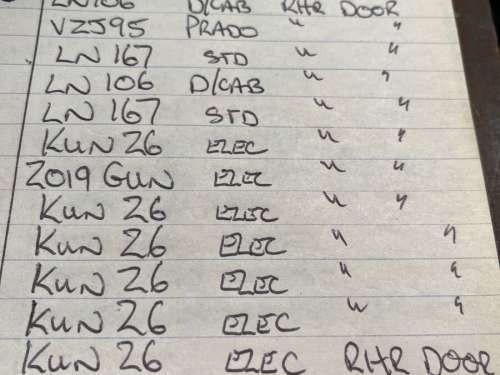 LN106 D/CAB RHR DOOR
VZJ95 PRADO " "
LN 167 STD " "
LN 106 D/CAB " "
LN 167 STD " "
KUN 26 ELEC " "
2019 GUN ELEC " "
KUN 26 ELEC " "
KUN 26 ELEC " "
KUN 26 ELEC " "
KUN 26 ELEC " "
KUN 26 ELEC RHR DOOR